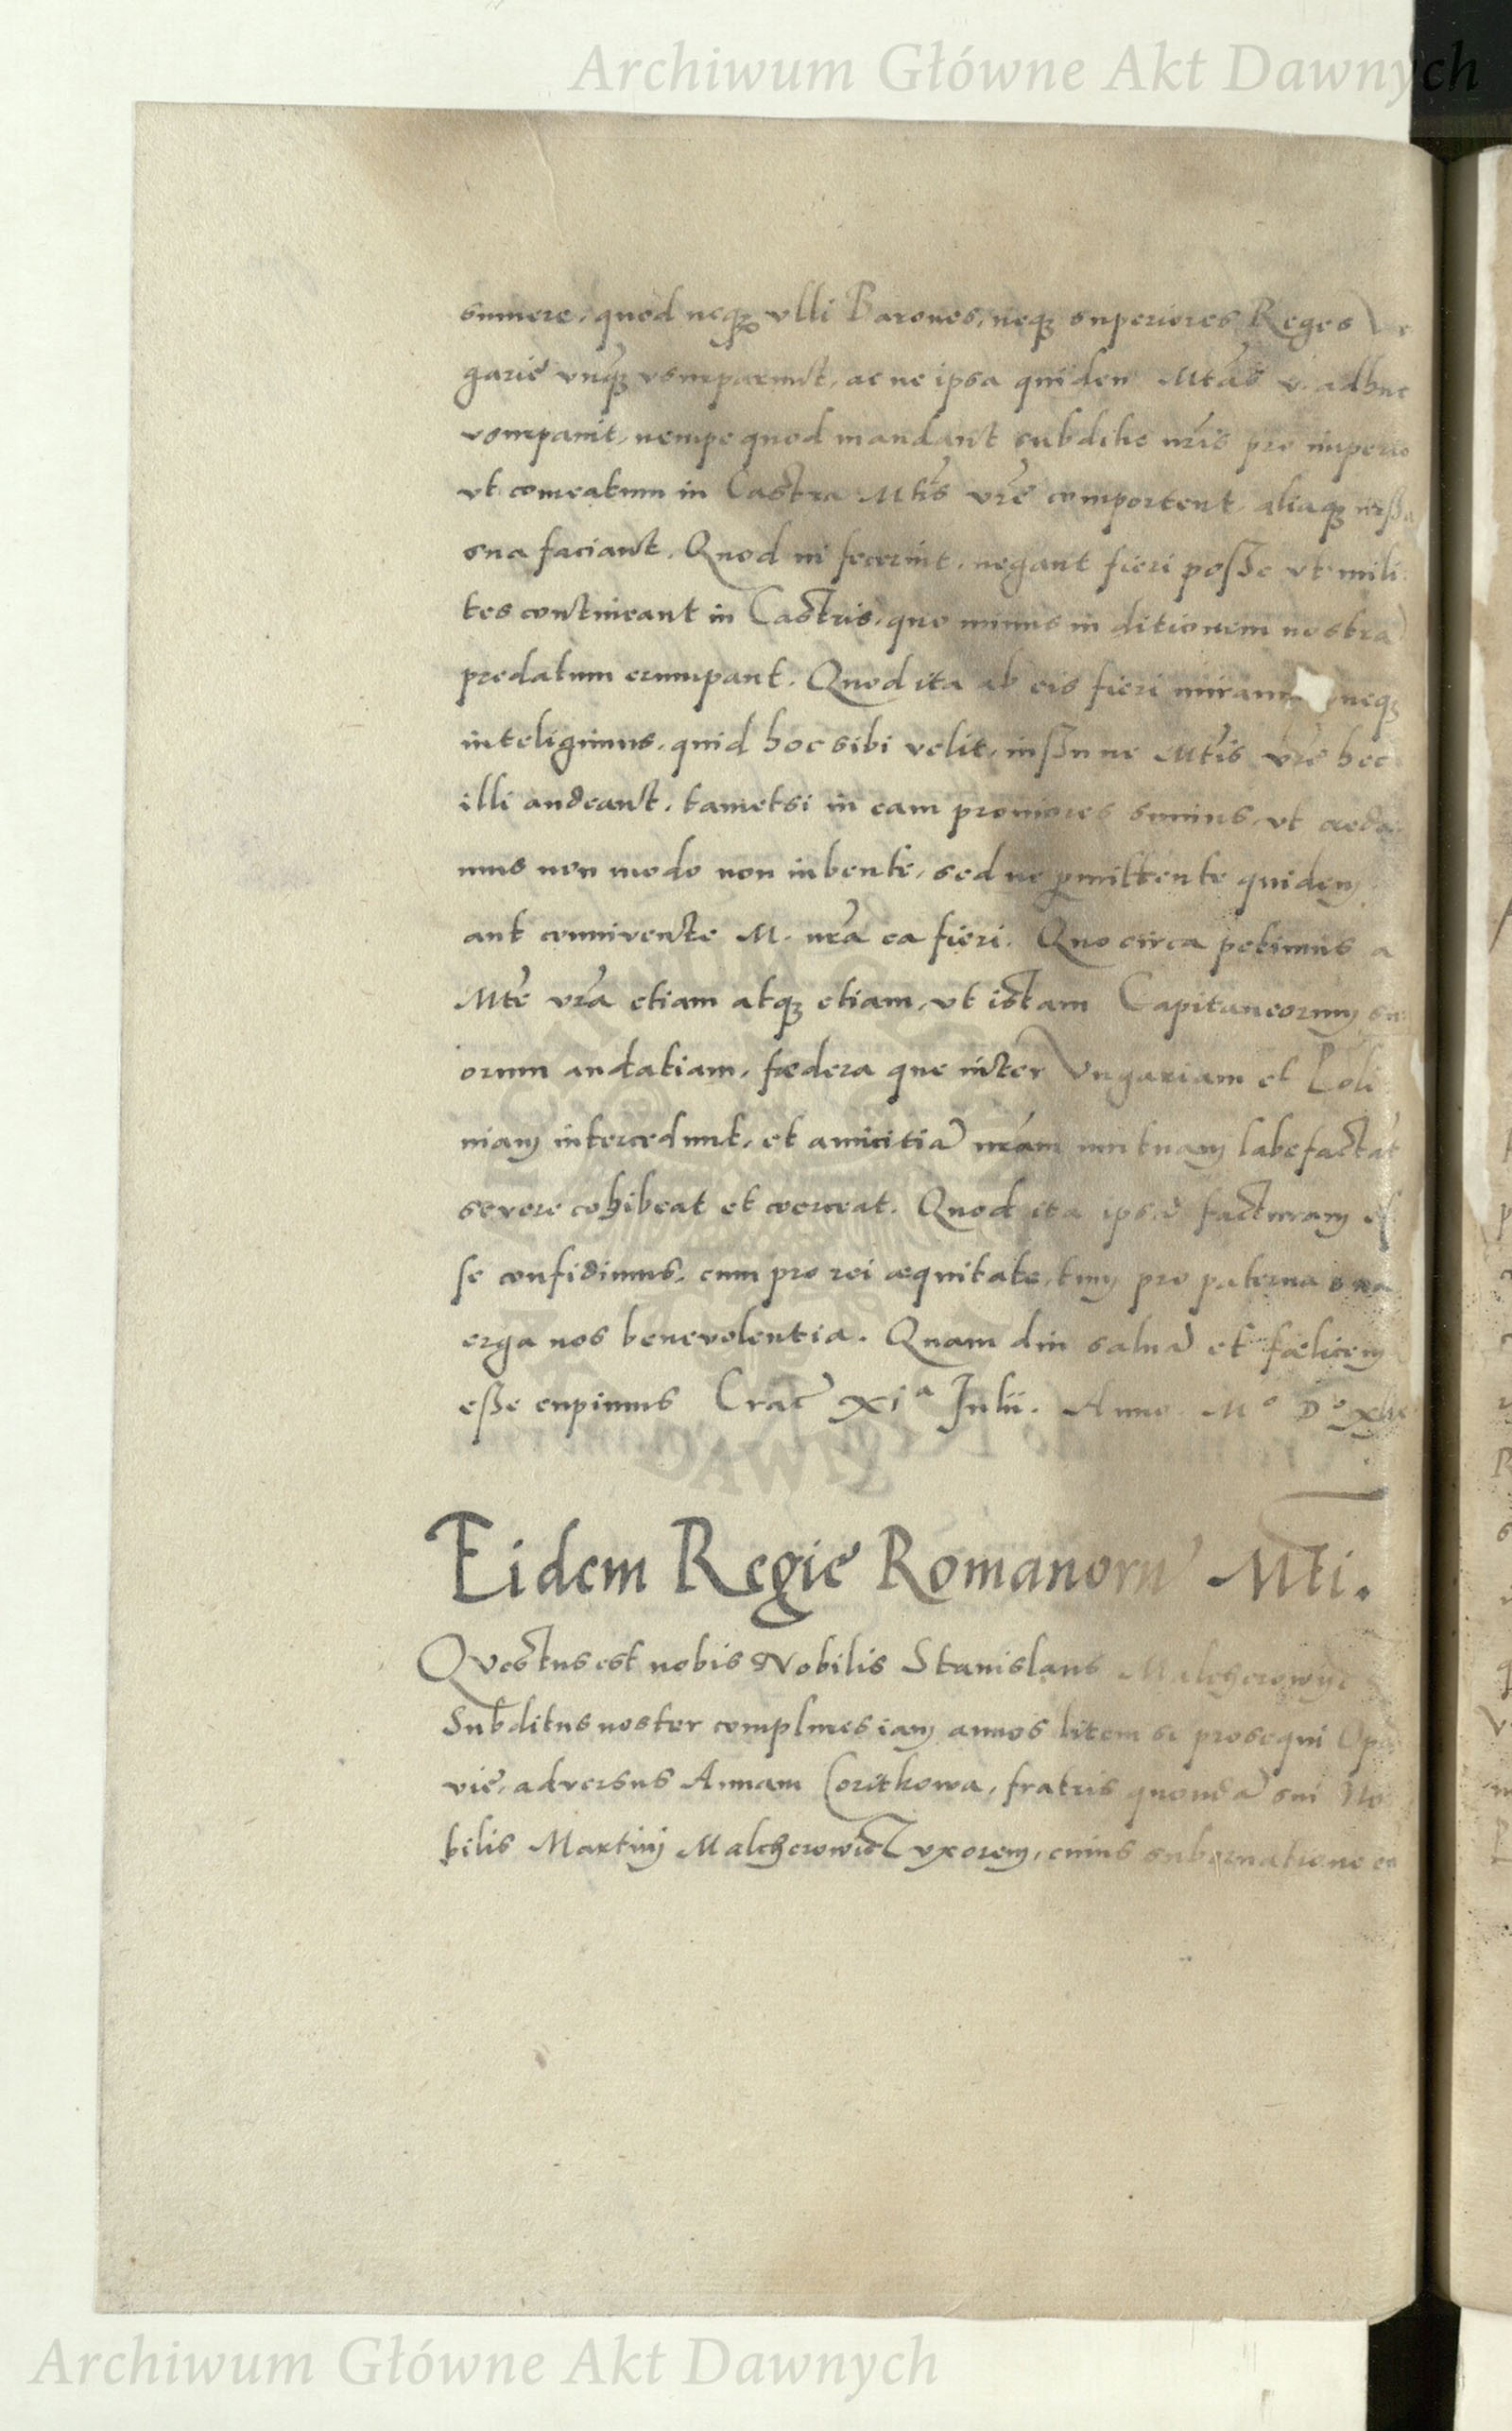 Archiwum Główne Akt Dawnych
sumere, quod neqꝫ ulli Barones, neqꝫ superiores Reges
garie unqꝫ usurparunt, ac ne ipsa quidem Mtas v. adhuc
usurpavit, nempe quod mandant subditis nris pro imperio
ut comeatum in Castra Mtis vre comportent, aliaqꝫ
sua faciant. Quod ni fecerint, negant fieri posse ut mili
tes contineant in Castris, quo minus in ditionem nostrā
predatum erumpant. Quod ita ab eis fieri neqꝫ
inteligimus, quid hoc sibi velit, iussu ne Mtis vre hec
illi audeant, tametsi in eam proniores sumus, ut creda
mus non modo non iubente, sed ne pmittente quidem
aut connivente M. vra ea fieri. Quo circa petimus a
Mte vra etiam atqꝫ etiam, ut istam Capitaneorum su
orum audatiam, fœdera que inter Vngariam et Polo
niam intercedunt, et amicitiā nram mutuam labefactāt
severe cohibeat et coerceat. Quod ita ipsā facturam es
se confidimus, cum pro rei æquitate, tum pro paterna sua
erga nos benevolentia. Quam diu salvā et fœlicem
esse cupimus Crac xiᵃ Julii. Anno Mᵒ Dᵒ
Eidem Regie Romanorū Mti.
Questus est nobis Nobilis Stanislaus
Subditus noster complures iam annos litem se prosequi Opa
vie, adversus Annam Coritkowa, fratris quondā sui No
bilis Martini Malcherowicz uxorem, cuius subornatione
Archiwum Główne Akt Dawnych